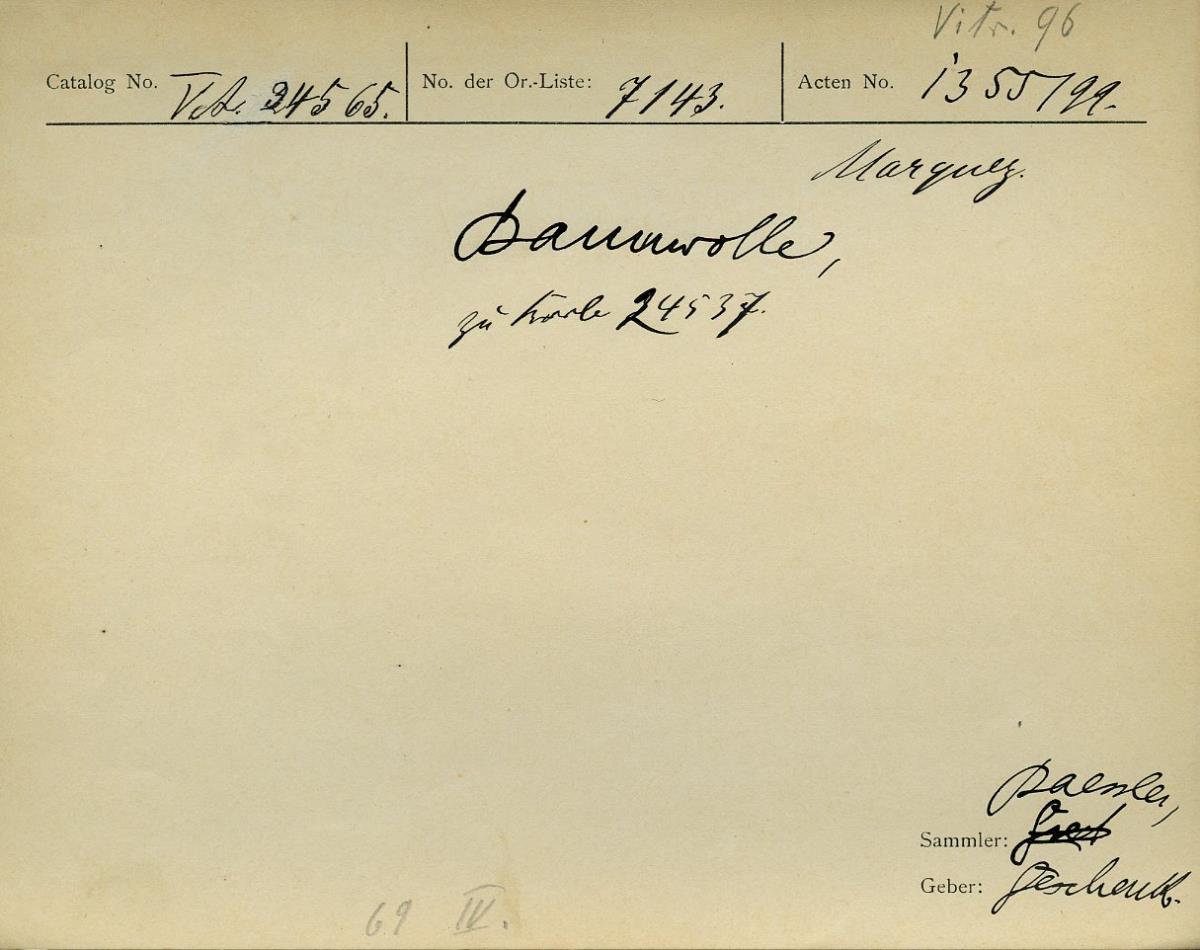 Vitr. 96
Catalog No. V.A. 24565. No. der Or.-Liste: 7143. Acten No. 1355/99.
Marquez.
Baumwolle,
zu Korbe 24537.
Baessler,
Sammler:
Geber: Geschenk.
69 IV.